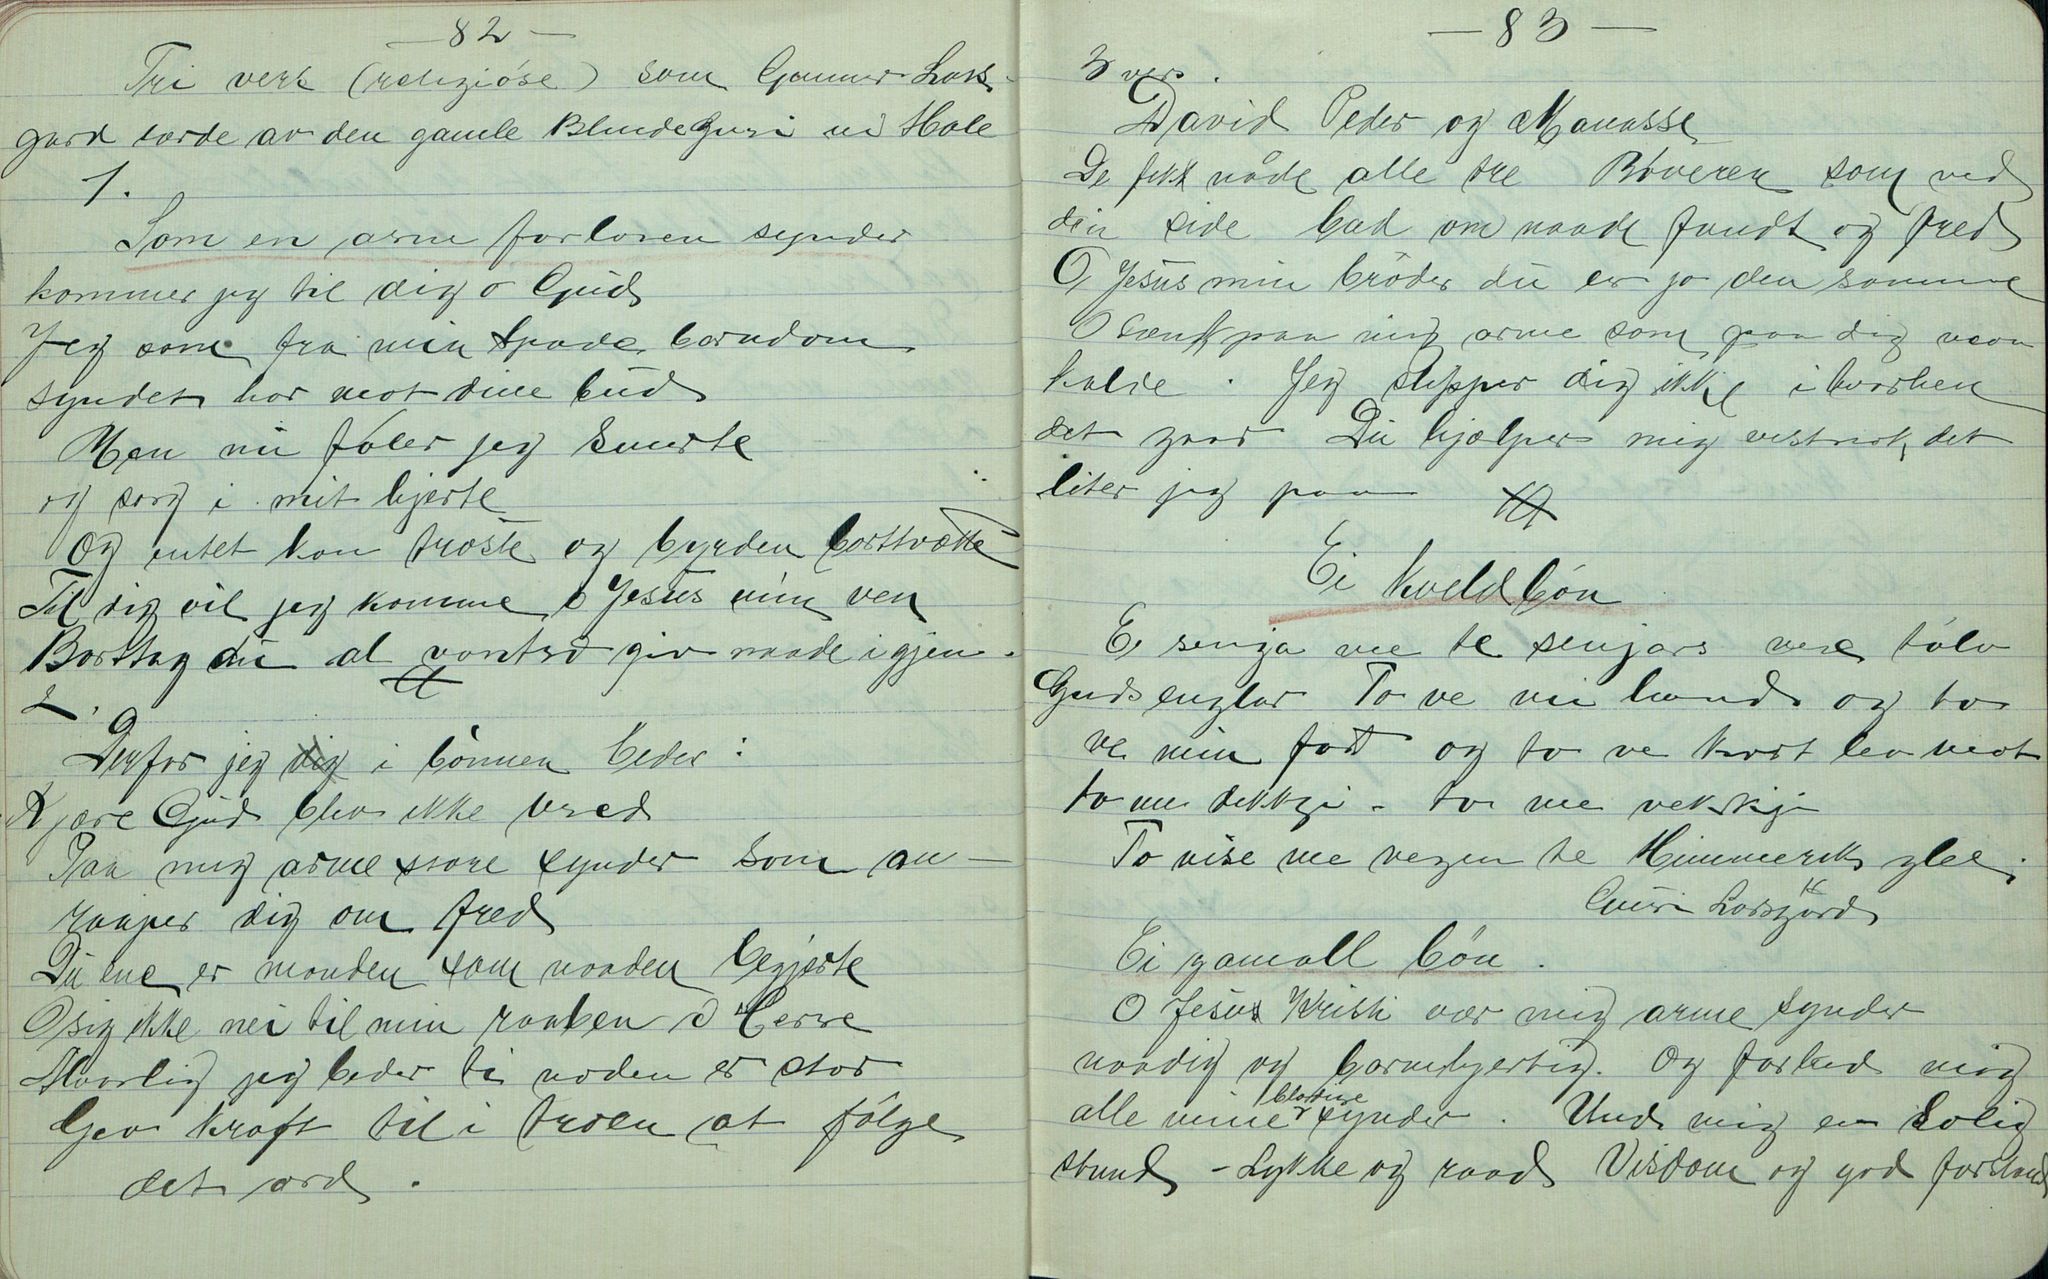 — 82 —
Tri vers (religiöse) som Gunnar Lars-
gard lærde av den gamle Blinde Guri i Hole
1.
Som en arm forloren synder
kommer jeg til dig o Gud
Jeg som fra min spæde barndom
syndet har mot dine bud
Men nu føler jeg smerte
og sorg i mit hjerte
Og intet kan trøste og byrden borttvætte
Til dig vil jeg komme, o Jesus min ven
Borttag du al vantro giv naade igjen.
2.
Derfor jeg dig i bönnen beder:
Kjære Gud bliv ikke vred
Paa mig arme store synder som an-
raaper dig om fred
Du ene er manden som naaden begjerte
O sig ikke nei til min raaben o Herre
Alvorlig jeg beder ti naden er stor
Gev kraft til i troen at fölge
det ord.
— 83 —
3 vers.
David Peder og Manasse
De fekk nåde alle tre Röveren som ved
din side bad om naade fandt og fred
O, Jesus min bröder du er jo den samme
O tænk paa mig arme som paa dig maa
kalle. Jeg slipper dig ikke i hvorhen
det gaar Du hjælper mig visst nok, det
liter jeg paa
Ei kveldbön
E senga me te senjars mæ tölv
Guds englar To ve mi haand og to
ve min fot og to ve kvart leamot
to me dekkji - to me vekkji
To vise me vegen te Himmerik glee.
Guri Larsgård
Ei gamall bön.
O Jesus Kristi vær mig arme synder
naadig og barmhjertig. Og forlad mig
alle mine blottine synder. Und mig en salig
stund - Lykke og raad Visdom og god forstand